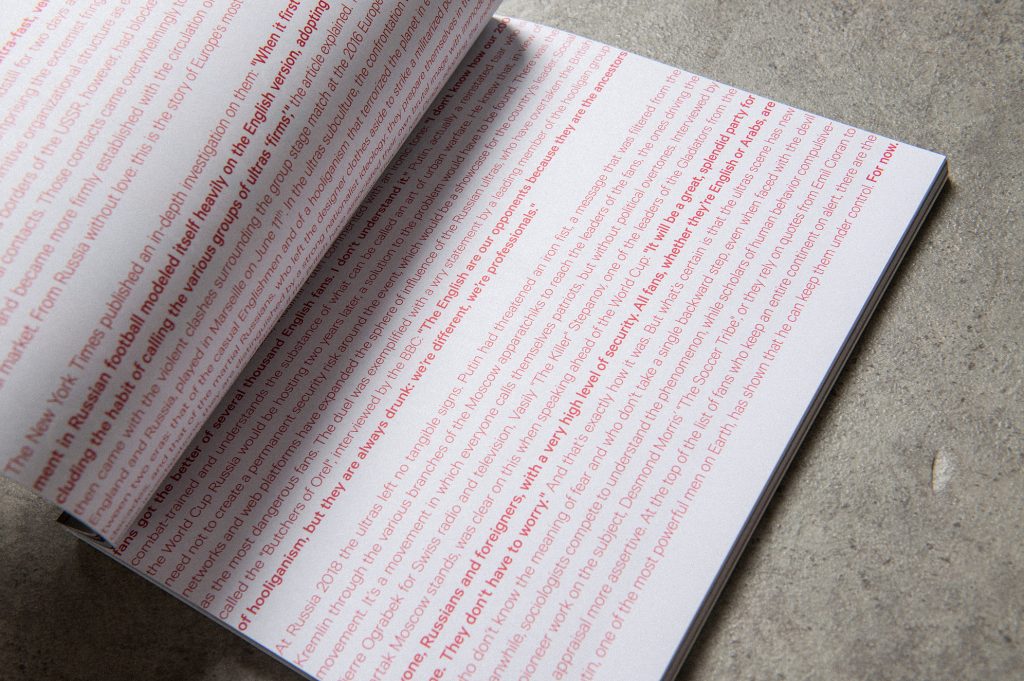 tra-fast, ve
all for two days
the extremist fringes
itive organizational structure
borders of the USSR, however, had blocked
contacts. Those contacts came overwhelmingly to
and became more firmly established with the circulation
market. From Russia without love: this is the story of Europe's most
The New York Times published an in-depth investigation on them: "When it first
ment in Russian football modeled itself heavily on the English version, adopting
cluding the habit of calling the various groups of ultras 'firms'," the article explained.
then came with the violent clashes surrounding the group stage match at the 2016 Europe
England and Russia, played in Marseille on June 11th. In the ultras subculture, the confrontation
tween two eras: that of the casual Englishmen and of a hooliganism that terrorized the planet
and that of the martial Russians, who left the designer clothes aside to strike a militarized
fans got the better of several thousand English fans. I don't understand it." "I don't know how our 200
combat-trained and understands the substance of what can be called an art of urban warfare. He knew that in
the World Cup Russia would be hosting two years later, a solution to the problem would have to be found. There
need not to create a permanent security risk around the event, which would be a showcase for the country's leader. Social
networks and web platforms have expanded the sphere of influence of the Russian ultras, who have overtaken the British
as the most dangerous fans. The duel was exemplified with a wry statement by a leading member of the hooligan group
called the "Butchers of Orel" interviewed by the BBC. "The English are our opponents because they are the ancestors
of hooliganism, but they are always drunk: we're different, we're professionals."
At Russia 2018 the ultras left no tangible signs. Putin had threatened an iron fist, a message that was filtered from the
Kremlin through the various branches of the Moscow apparatchiks to reach the leaders of the fans, the ones driving the
movement. It's a movement in which everyone calls themselves patriots, but without political overtones. Interviewed by
ierre Ograbek for Swiss radio and television, Vasily "The Killer" Stepanov, one of the leaders of the Gladiators from the
artak Moscow stands, was clear on this when speaking ahead of the World Cup: "It will be a great, splendid party for
one, Russians and foreigners, with a very high level of security. All fans, whether they're English or Arabs, are
me. They don't have to worry." And that's exactly how it was. But what's certain is that the ultras scene has new
ho don't know the meaning of fear and who don't take a single backward step, even when faced with the devil
anwhile, sociologists compete to understand the phenomenon, while scholars of human behavior compulsive-
pioneer work on the subject: Desmond Morris' "The Soccer Tribe" or they rely on quotes from Emil Cioran to
appraisal more assertive. At the top of the list of fans who keep an entire continent on alert, there are the
tin, one of the most powerful men on Earth, has shown that he can keep them under control. For now.